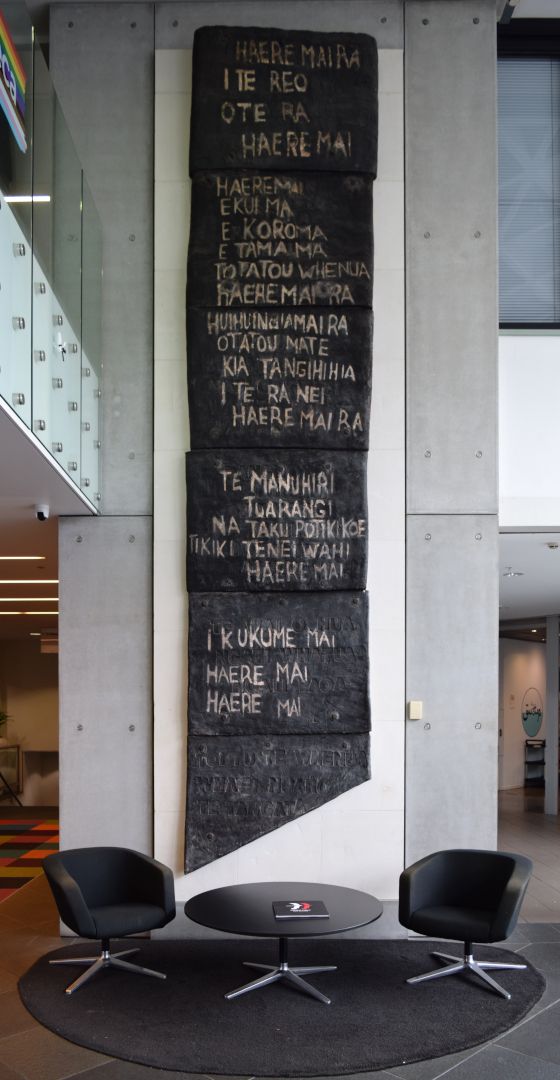 HAERE MAI RA
I TE REO
OTE RA
HAERE MAI
HAEREMAI
EKUI MA
E KOROMA
E TAMA MA
TOTATOU WHENUA
HAERE MAI RA
HUIHUINGIAMAI RA
OTATOU MATE
KIA TANGIHIHIA
I TE RA NEI
HAERE MAI RA
TE MANUHIRI
TUARANGI
NA TAKU POTIKI KOE
TIKIKI TENEI WAHI
HAERE MAI
I KUKUME MAI
HAERE MAI
HAERE MAI
TE WHENUA
TE TANGATA